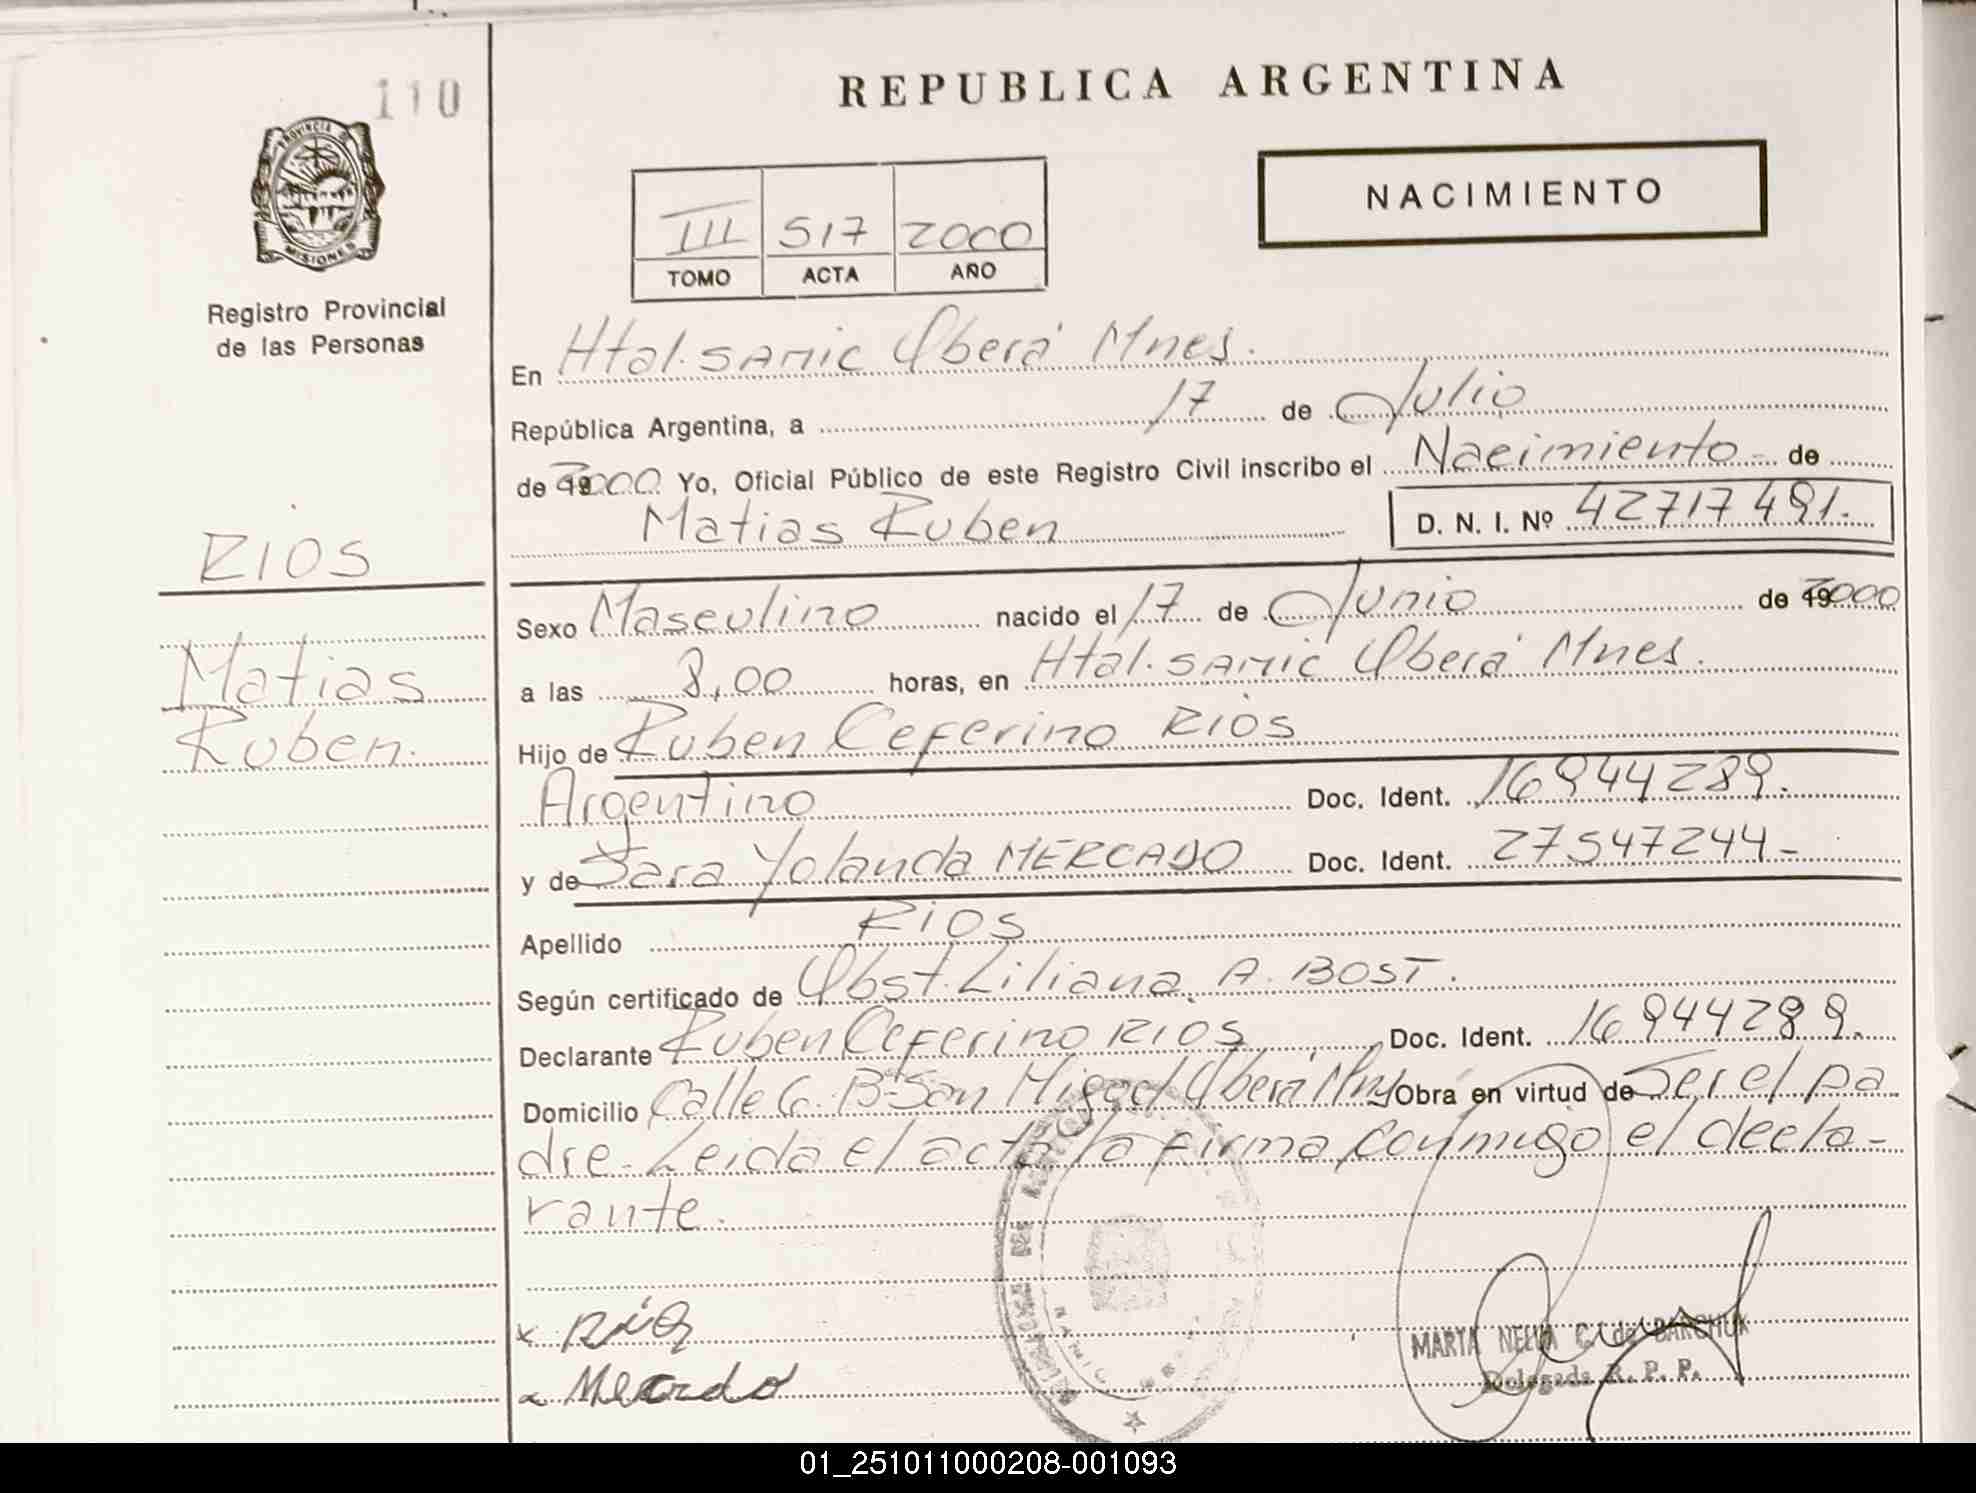 110
REPUBLICA ARGENTINA
PROVINCIA DE
MISIONES
NACIMIENTO
III 517 2000
TOMO ACTA AÑO
Registro Provincial
de las Personas
En Htal. SAMIC Oberá Mnes.
República Argentina, a 17 de Julio
de 2000 Yo, Oficial Público de este Registro Civil inscribo el Nacimiento - de
Matias Ruben D. N. I. Nº 42717491.
RIOS
Matias
Ruben.
Sexo Masculino nacido el 17 de Junio de 2000
a las 8,00 horas, en Htal. SAMIC Oberá Mnes.
Hijo de Ruben Ceferino RIOS
Argentino Doc. Ident. 16944289.
y de Sara Yolanda MERCADO Doc. Ident. 27547244-
Apellido RIOS
Según certificado de Obst. Liliana A. BOST.
Declarante Ruben Ceferino RIOS Doc. Ident. 16944289.
Domicilio Calle G. Bº San Miguel Oberá Mns Obra en virtud de Ser el pa
dre - Leida el acta la firma conmigo el decla-
rante.
x Rios
x Mercado
MARTA NELIA C. de BARCHUK
Delegada R. P. P.
01_251011000208-001093